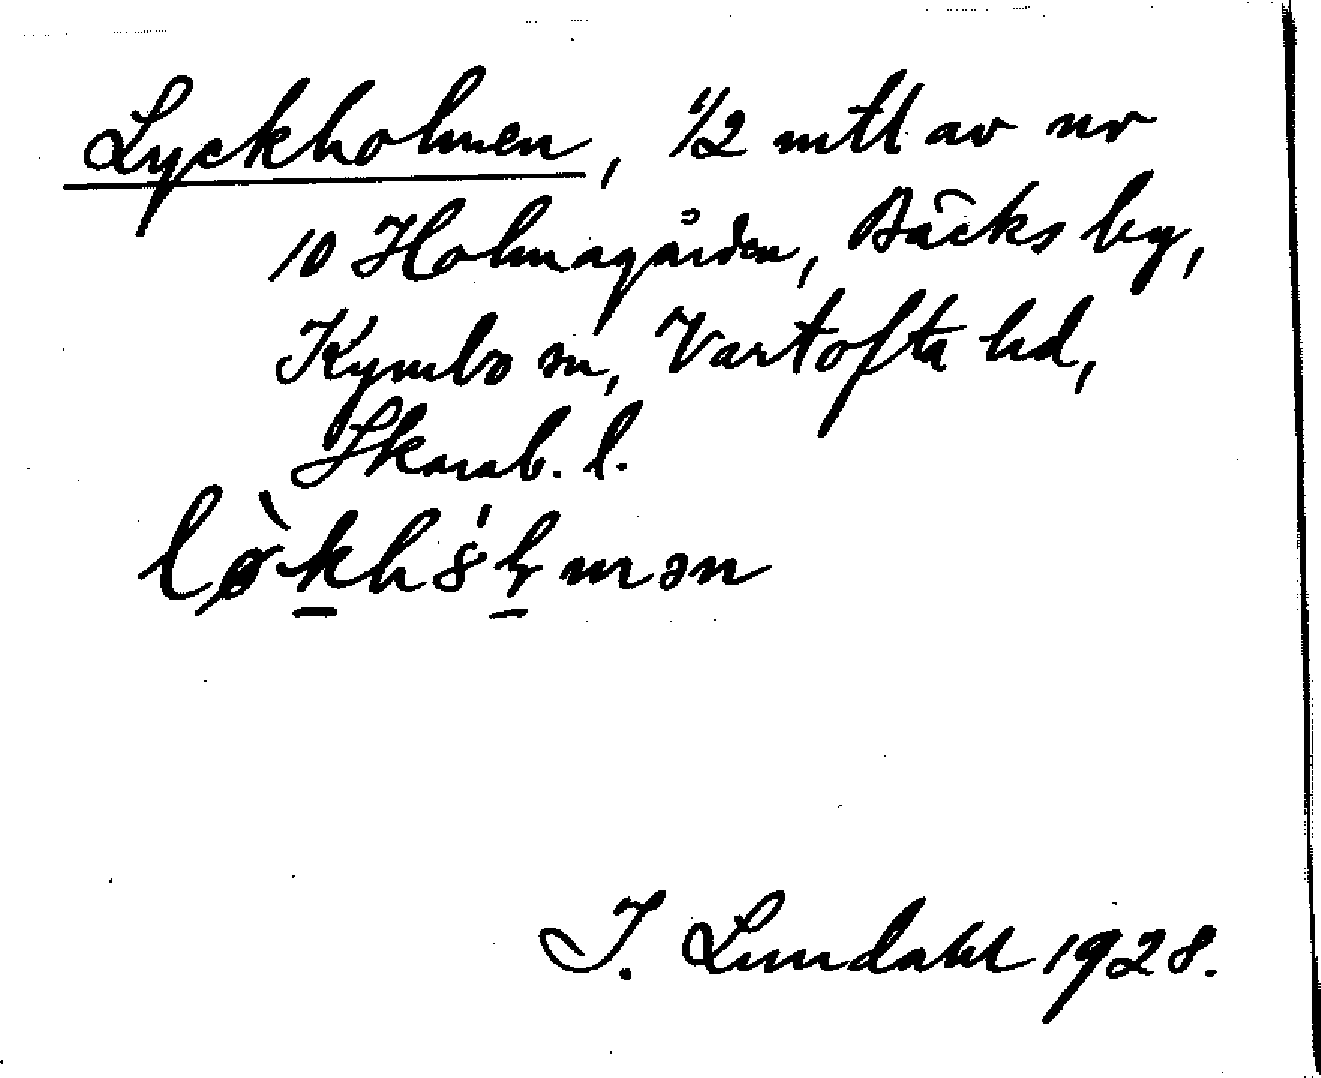 Lyckholmen, 1/2 mtl av nr
10 Holmagården, Bäcks by,
Kymbo sn, Vartofta hd,
Skarab. l.
lø̀kh8́lmən
I. Lundahl 1928.